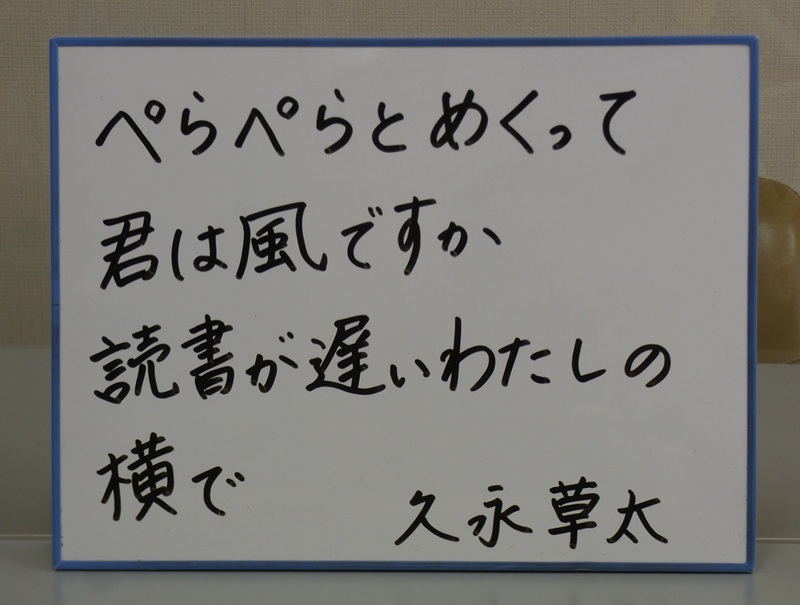 ぺらぺらとめくって
君は風ですか
読書が遅いわたしの
横で
久永草太